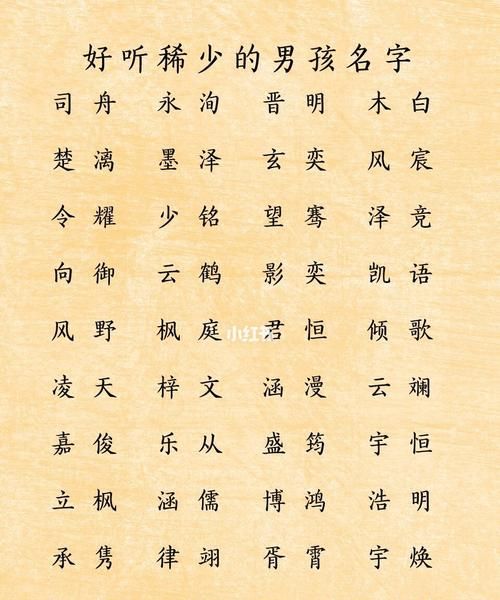 好听稀少的男孩名字
司舟 永洵 晋明 木白
楚漓 墨泽 玄奕 风宸
令耀 少铭 望骞 泽竞
向御 云鹤 影奕 凯语
风野 枫庭 君恒 倾歌
小红书
凌天 梓文 涵漫 云斓
嘉俊 乐从 盛筠 宇恒
立枫 涵儒 博鸿 浩明
承隽 律翊 胥霄 宇焕